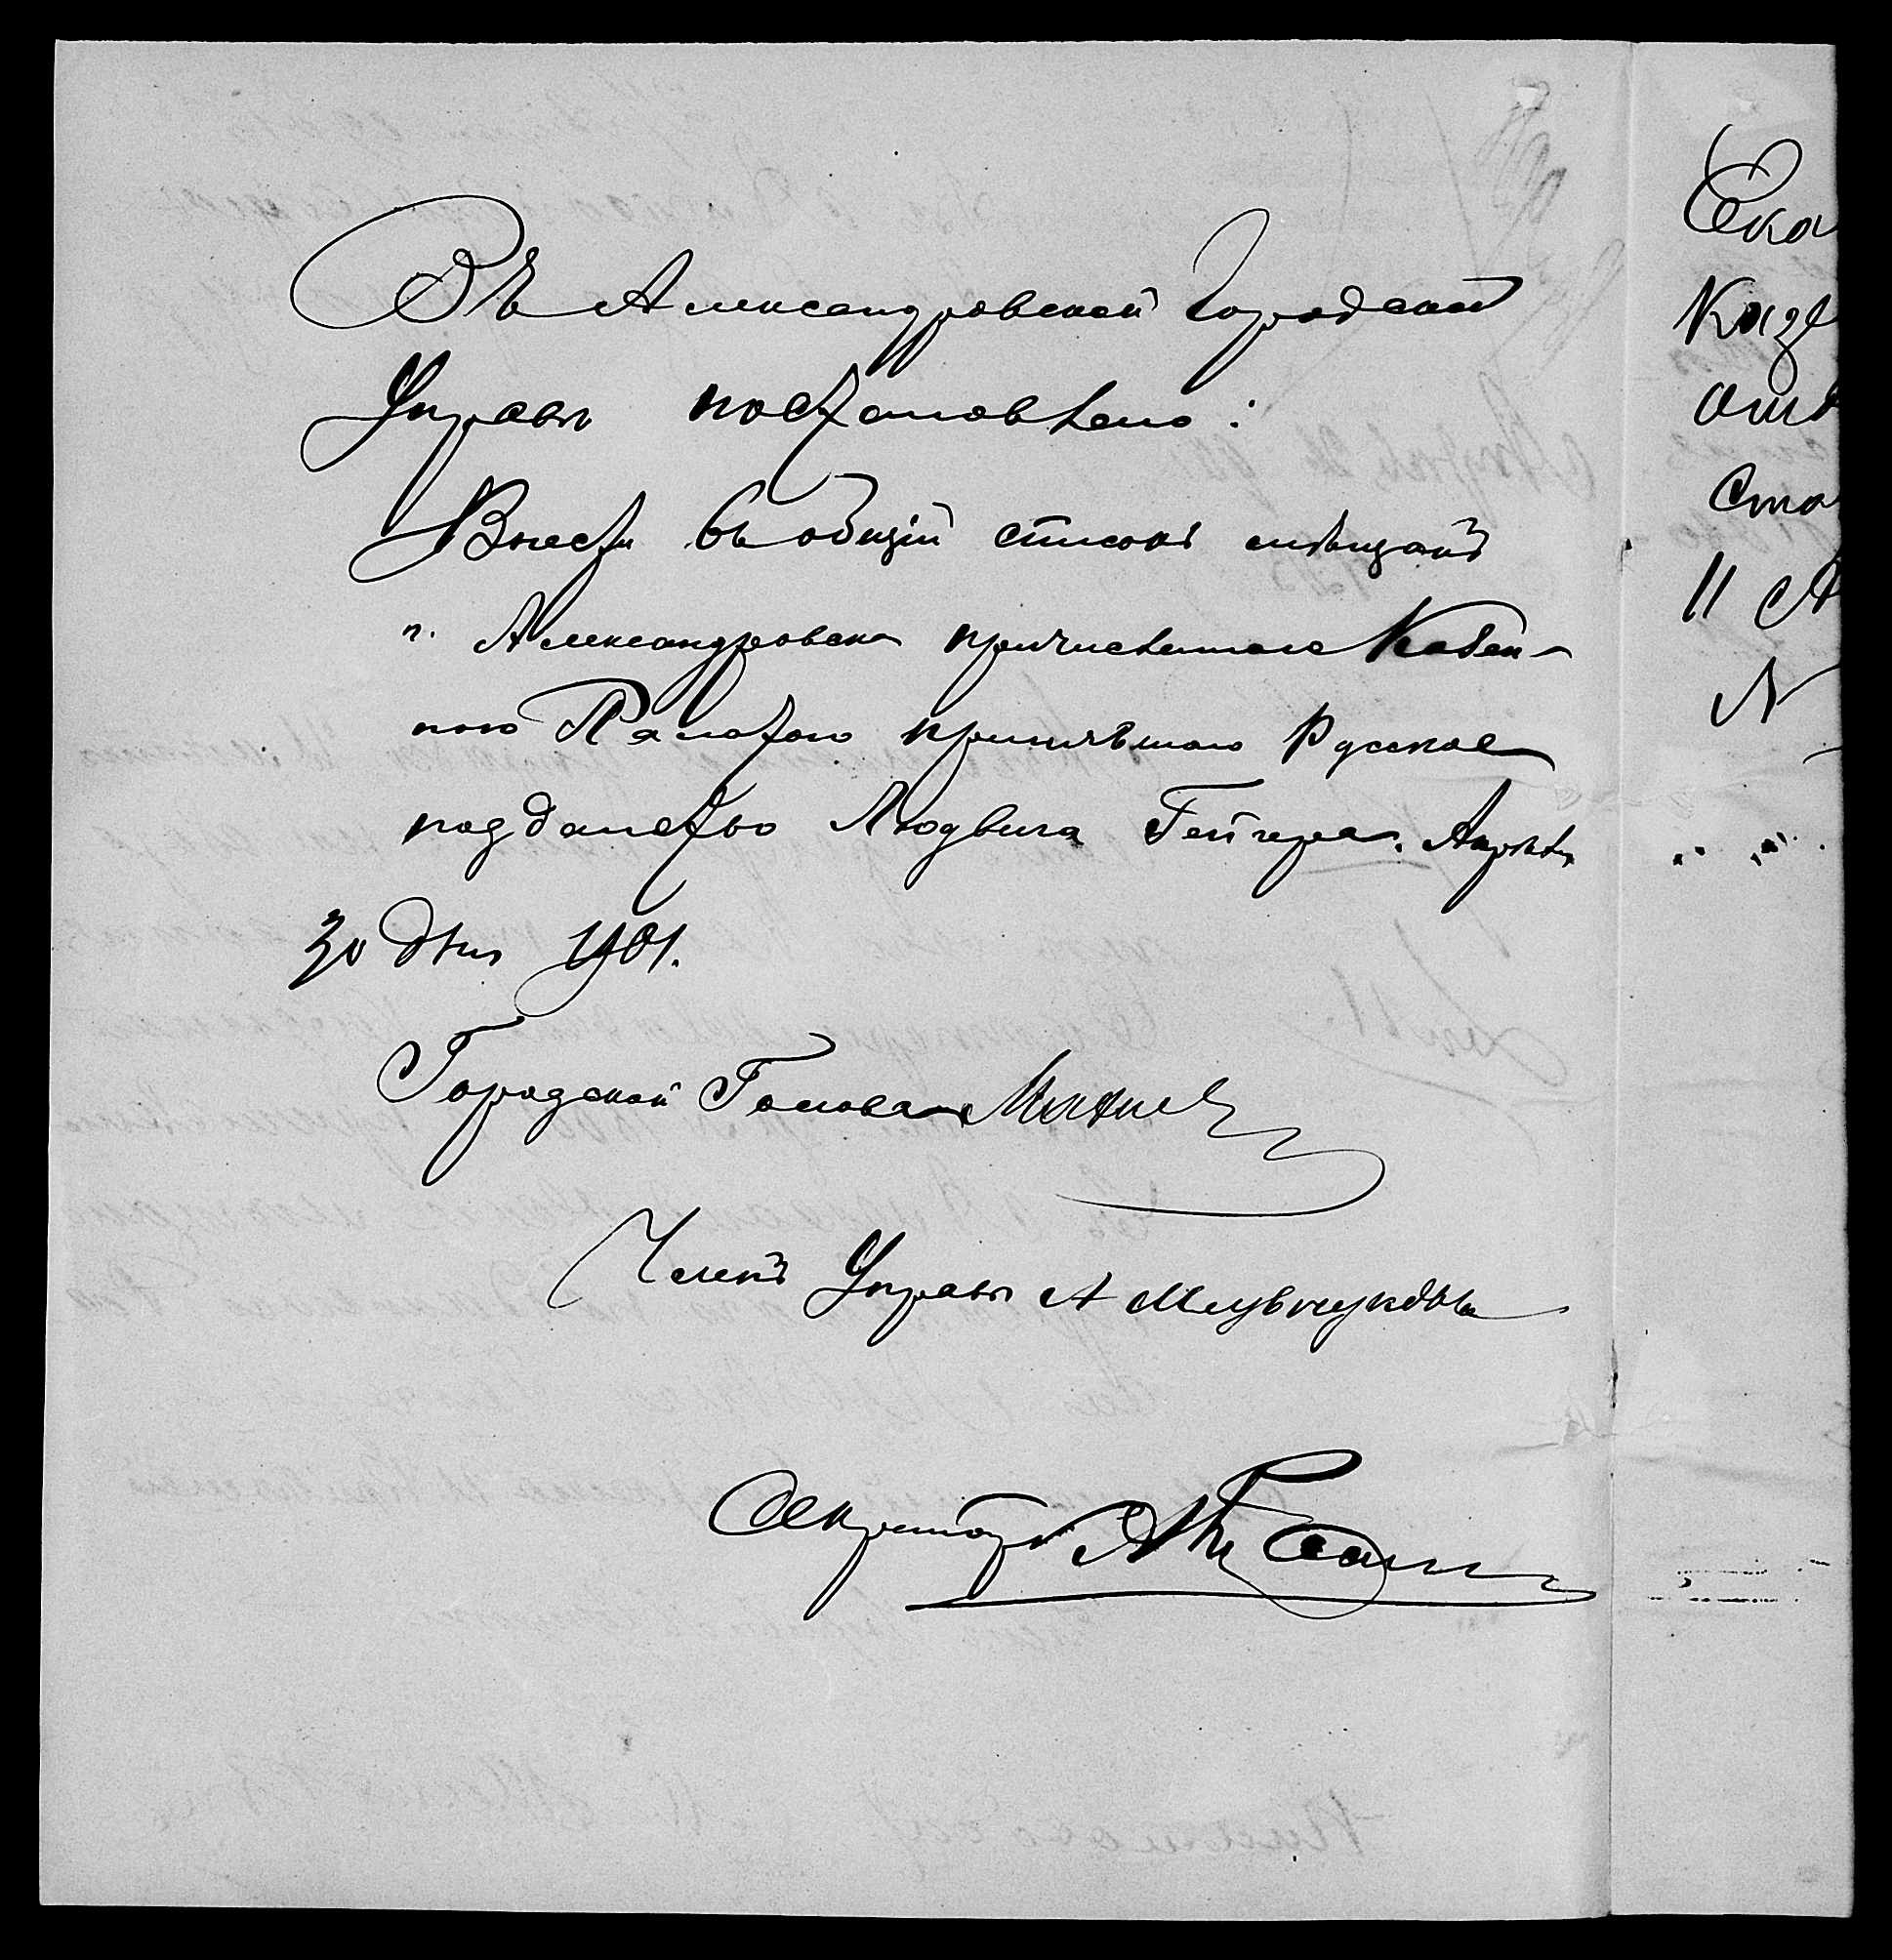 Въ Александровской Городской
Управѣ постановлено:
Внести въ общій списокъ мѣщанъ
г. Александровска причисленнаго Казен-
ною Палатою принявшаго Русское
подданство Людвига Гейгера. Апрѣля
30 дня 1901.
Городской Голова
Членъ Управы А
Секретарь
Ека
Казе
отд
Сто
11 А
N